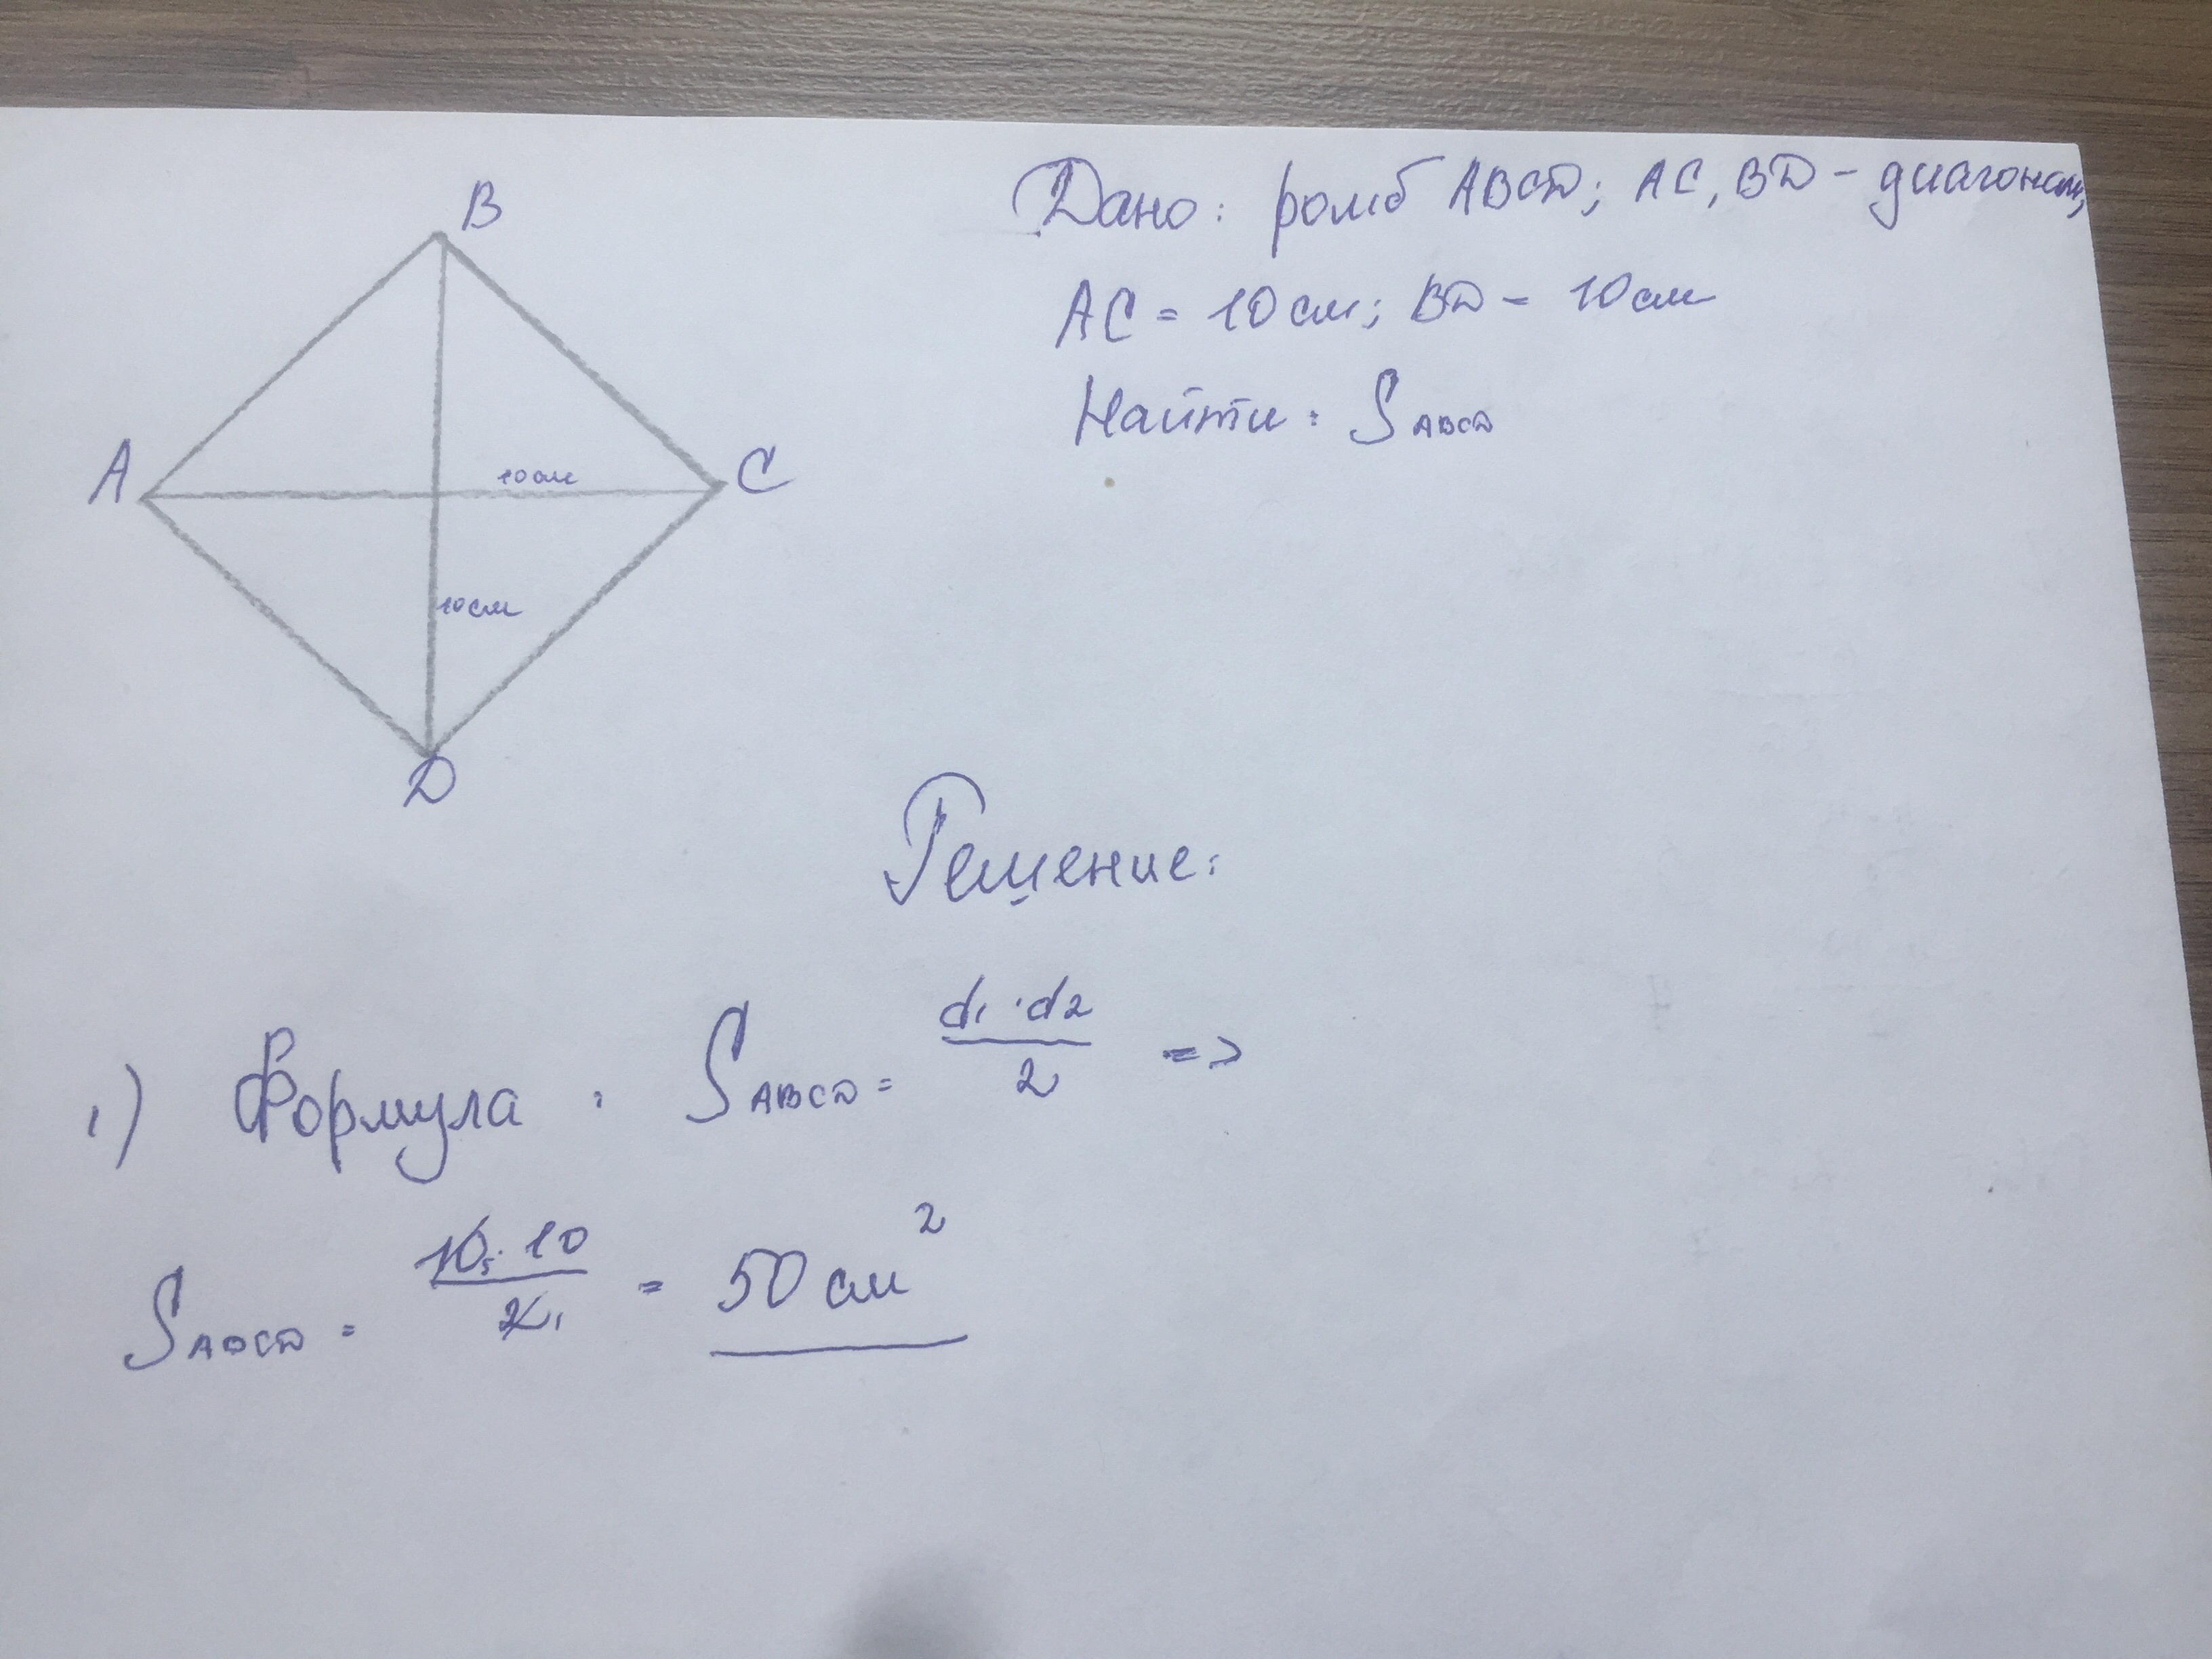 B
A
C
D
10см
10см
Дано: ромб ABCD; AC, BD - диагонали;
AC = 10 см; BD - 10 см
Найти: S ABCD
Решение:
1) Формула: S ABCD = d1 · d2 / 2 =>
S ABCD = 10 5 · 10 / 2 1 = 50 см²